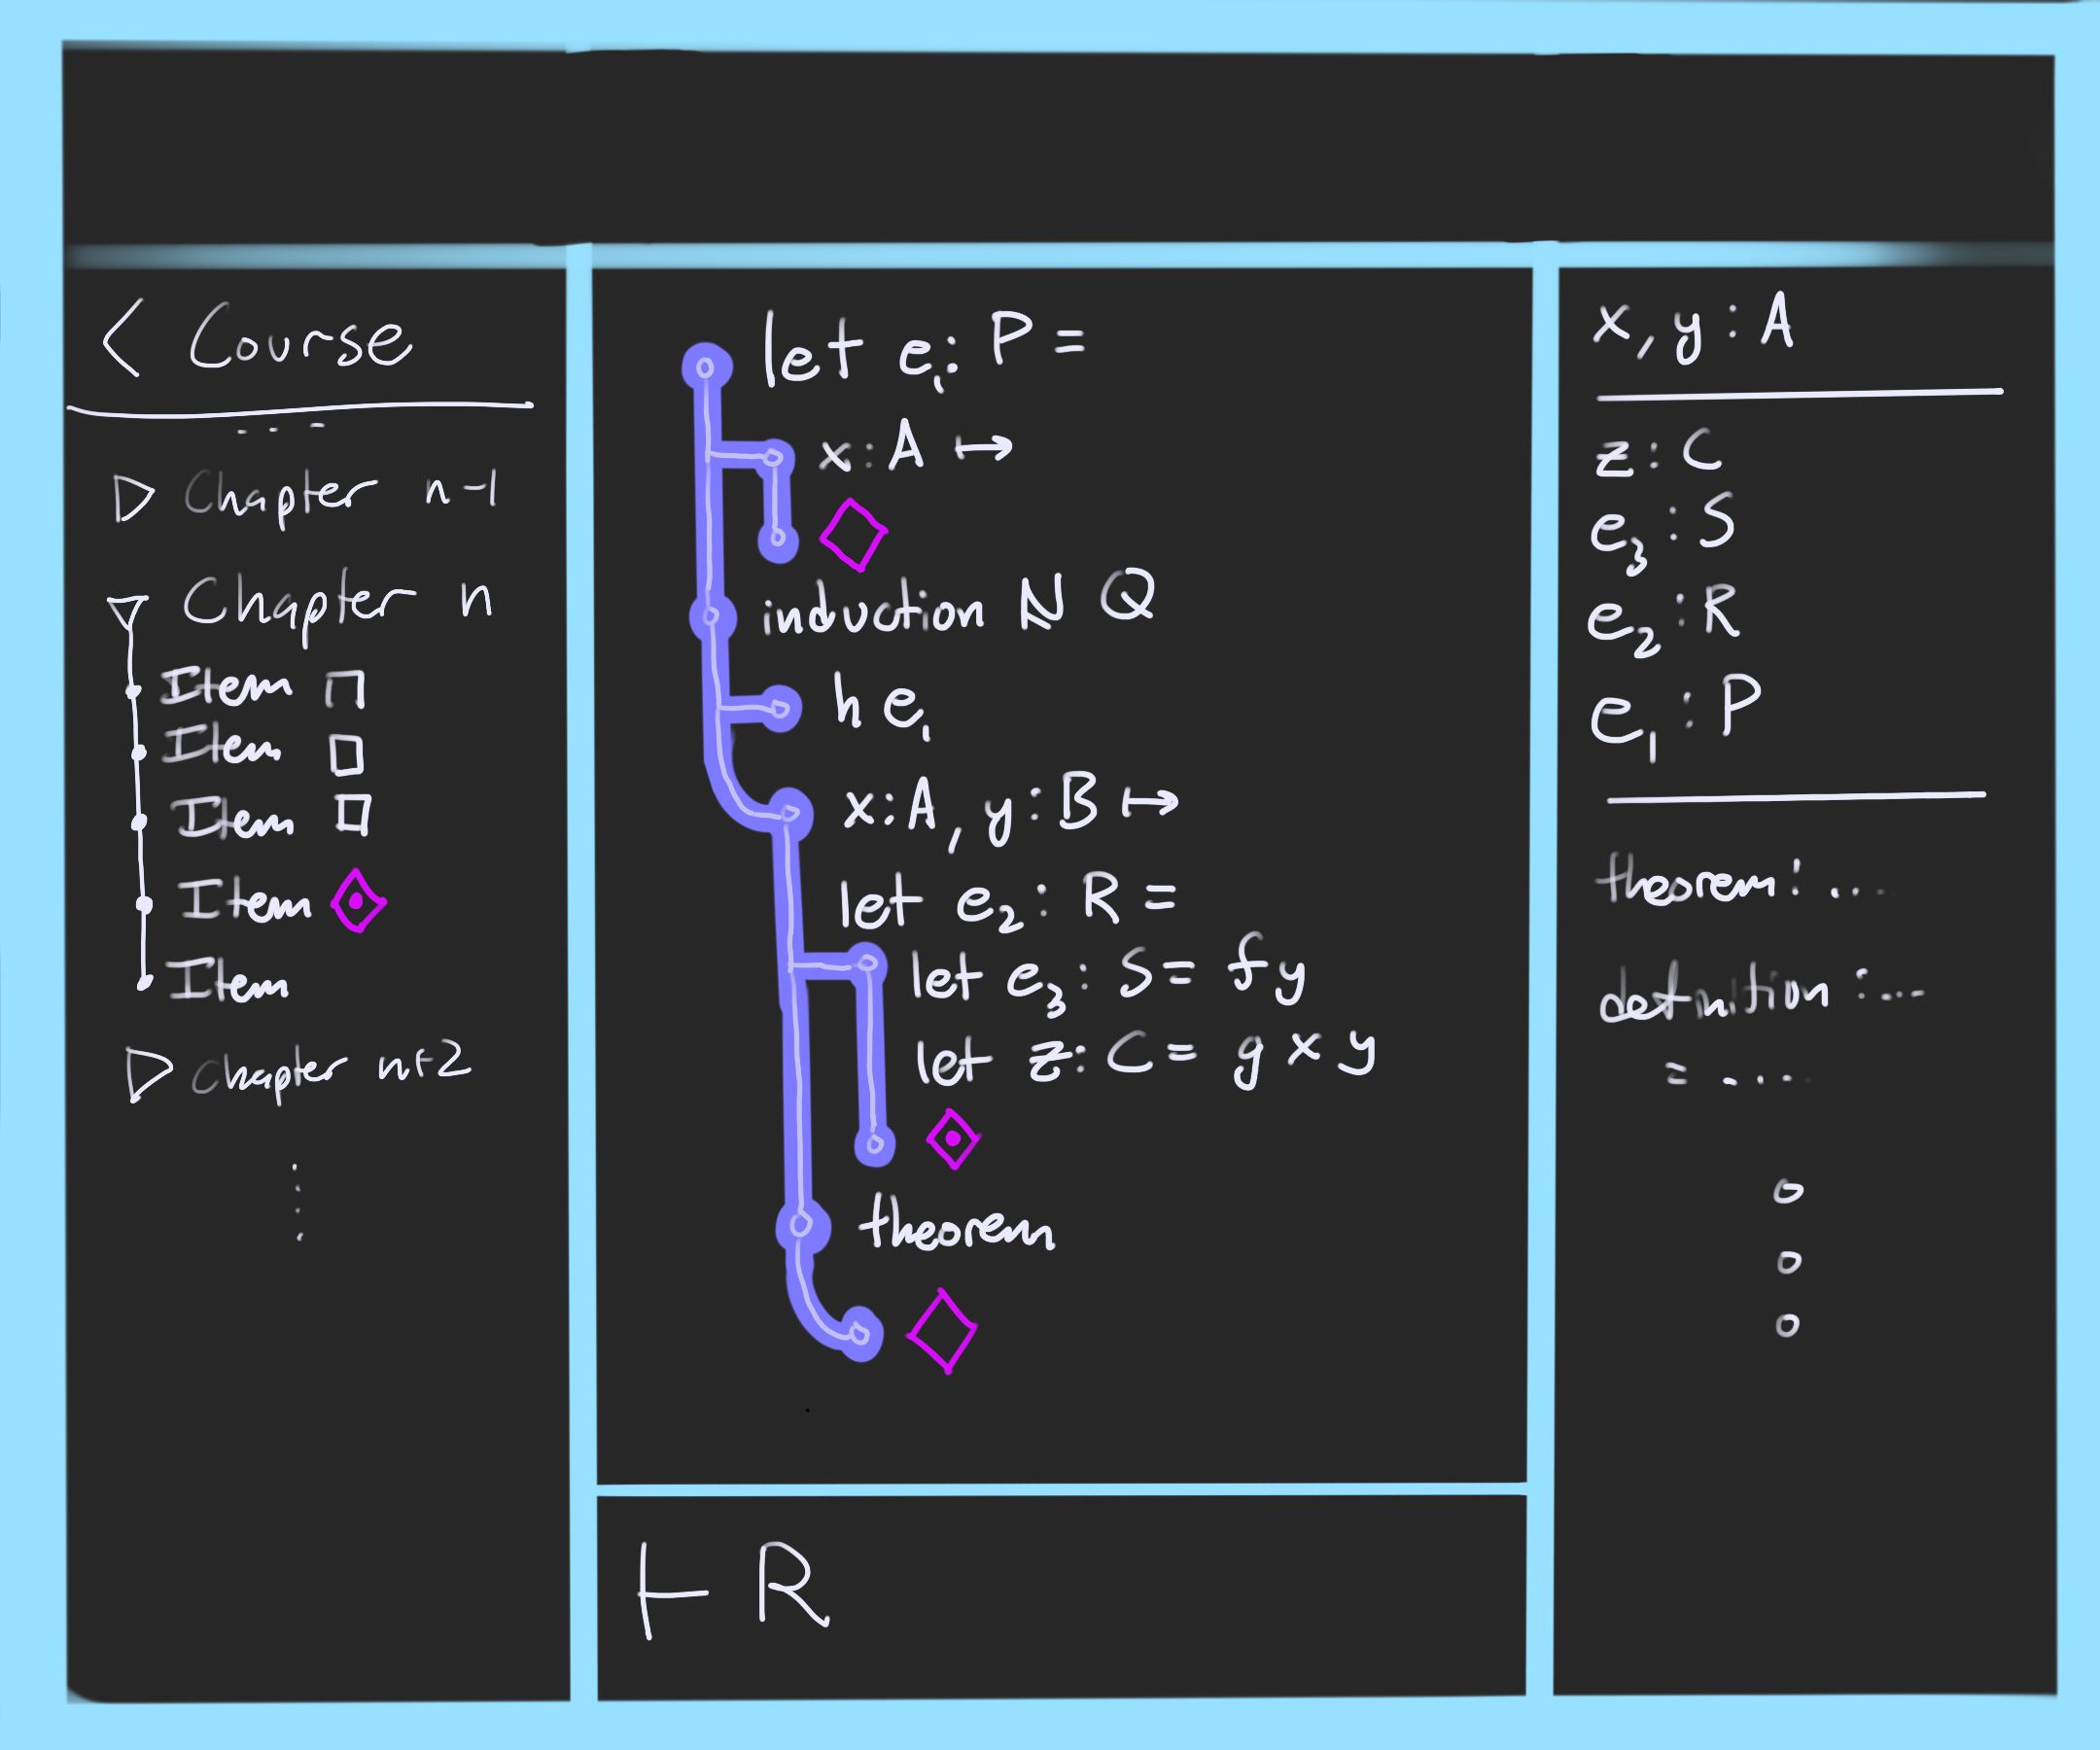 < Course
...
▷ Chapter n-1
▽ Chapter n
Item □
Item □
Item □
Item
Item
▷ Chapter n+2
let e₁: P =
x: A ↦
induction N Q
h e₁
x: A, y: B ↦
let e₂: R =
let e₃: S = f y
let z: C = g x y
theorem
⊢ R
x, y: A
z: C
e₃: S
e₂: R
e₁: P
theorem: ...
definition: ...
= ....